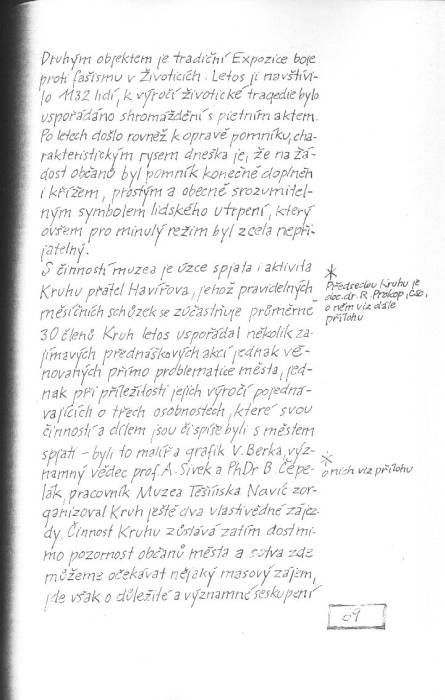 Druhým objektem je tradiční Expozice boje
proti fašismu v Životicích. Letos ji navštívi-
lo 1132 lidí, k výročí životické tragedie bylo
uspořádáno shromáždění s pietním aktem.
Po letech došlo rovněž k opravě pomníku, cha-
rakteristickým rysem dneška je, že na žá-
dost občanů byl pomník konečně doplněn
i křížem, prostým a obecně srozumitel-
ným symbolem lidského utrpení, který
ovšem pro minulý režim byl zcela nepři-
jatelný.
S činností muzea je úzce spjata i aktivita
Kruhu přátel Havířova, jehož pravidelných
měsíčních schůzek se zúčastňuje průměrně
30 členů. Kruh letos uspořádal několik za-
jímavých přednáškových akcí jednak vě-
novaných přímo problematice města, jed-
nak při příležitosti jejich výročí pojedná-
vajících o třech osobnostech, které svou
činností a dílem jsou či spíše byli s městem
spjati - byli to malíř a grafik V. Berka, výz-
namný vědec prof. A. Sivek a PhDr B. Čepe-
lák, pracovník Muzea Těšínska. Navíc zor-
ganizoval Kruh ještě dva vlastivědné zájez-
dy. Činnost Kruhu zůstává zatím dost mi-
mo pozornost občanů města a sotva zde
můžeme očekávat nějaký masový zájem,
jde však o důležité a významné seskupení
*
Předsedou Kruhu je
doc. dr. R. Prokop, CSc,
o něm viz dále
přílohu
*
o nich viz přílohu
09